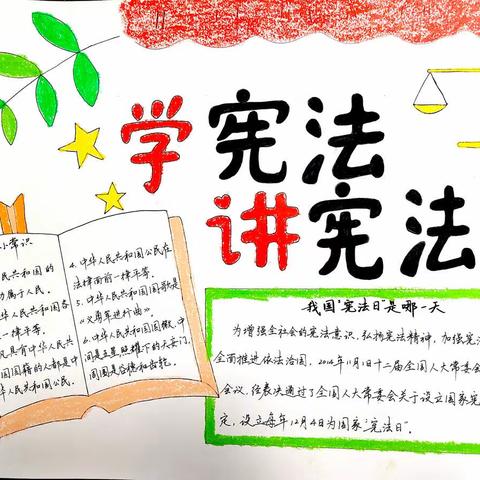 学宪法
讲宪法
小常识
民共和国的
力属于人民。
华人民共和国各
一律平等。
凡具有中华人民共
国国籍的人都是中
华人民共和国公民。
4.中华人民共和国公民在
法律面前一律平等。
5.中华人民共和国国歌是
《义勇军进行曲》。
6.中华人民共和国国徽,中
间是五星照耀下的天安门,
周围是谷穗和齿轮。
我国"宪法日"是哪一天
为增强全社会的宪法意识,弘扬宪法精神,加强宪
全面推进依法治国,2014年11月1日十二届全国人大常委会
会议,经表决通过了全国人大常委会关于设立国家宪
定,设立每年12月4日为国家"宪法日".